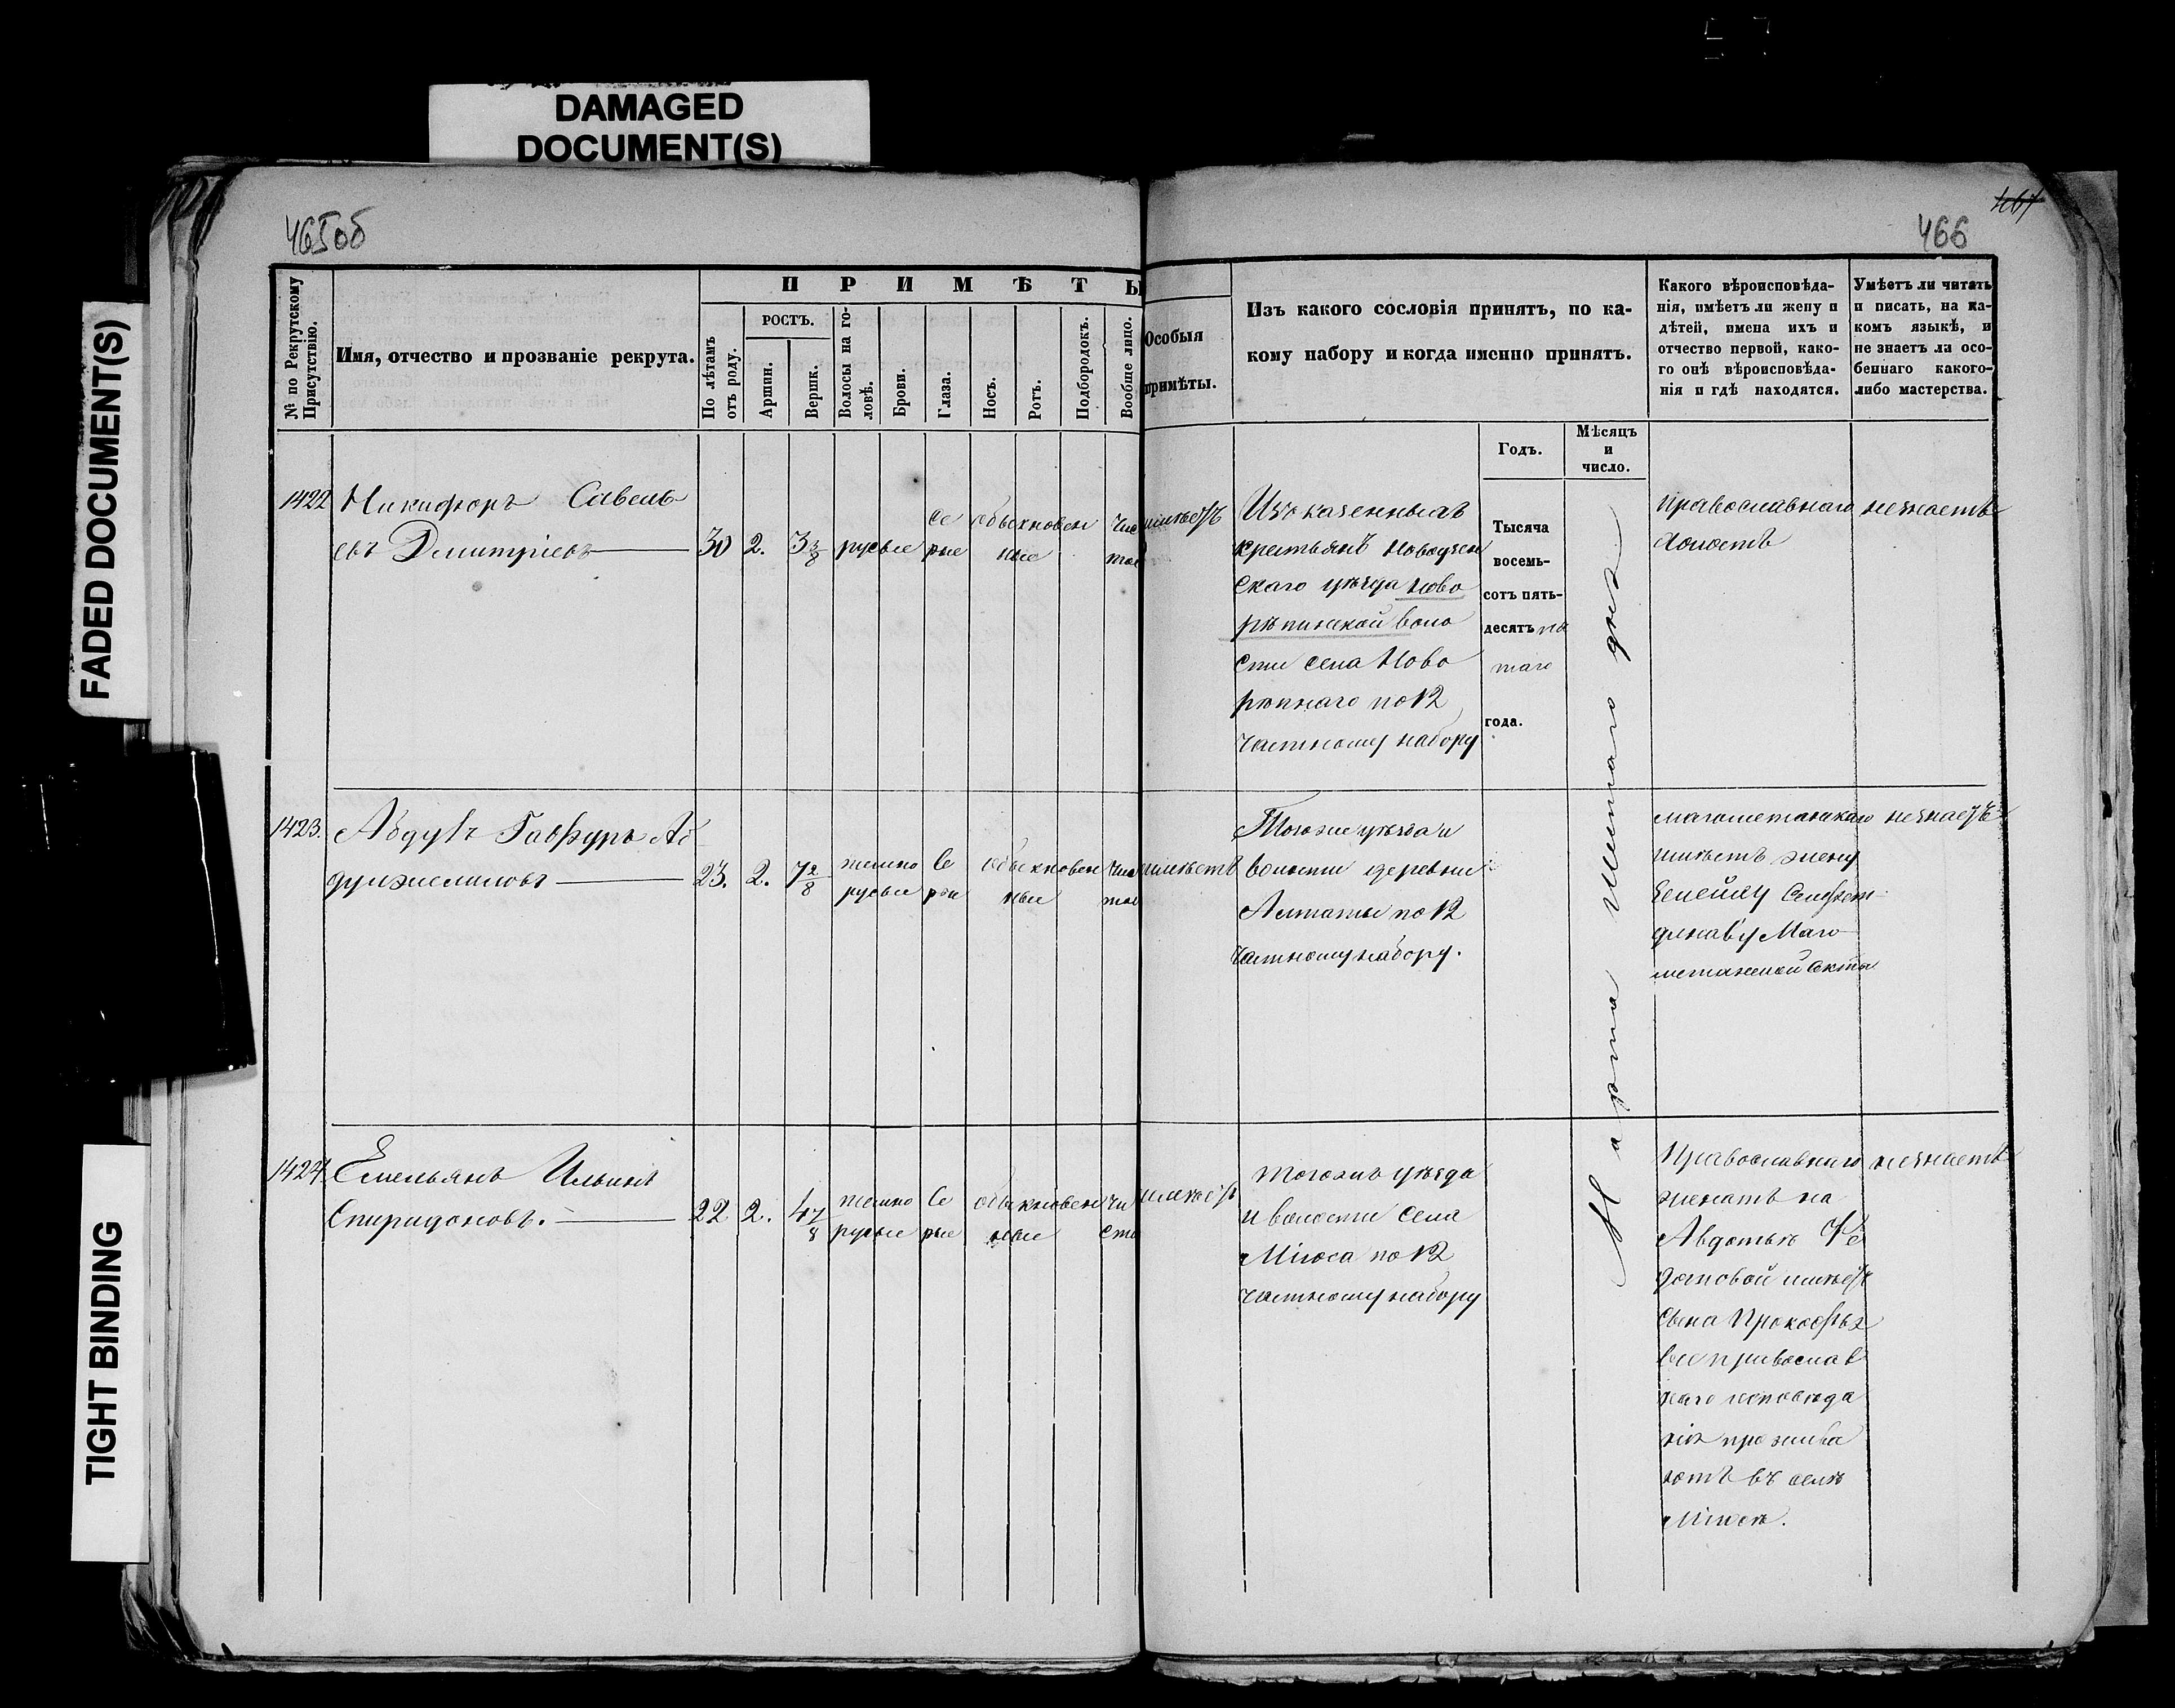 DAMAGED
DOCUMENT(S)
FADED DOCUMENT(S)
TIGHT BINDING
465об
466
467
№ по Рекрутскому
Присутствію.
Имя, отчество и прозваніе рекрута.
ПРИМѢТЫ
По лѣтамъ
отъ роду.
РОСТЪ.
Аршин.
Вершк.
Волосы на го-
ловѣ.
Брови.
Глаза.
Носъ.
Ротъ.
Подбородокъ.
Вообще лицо.
Особыя
примѣты.
Изъ какого сословія принятъ, по ка-
кому набору и когда именно принятъ.
Годъ.
Мѣсяцъ
и
число.
Какого вѣроисповѣда-
нія, имѣетъ ли жену и
дѣтей, имена ихъ и
отчество первой, како-
го онѣ вѣроисповѣда-
нія и гдѣ находятся.
Умѣетъ ли читать
и писать, на ка-
комъ языкѣ, и
не знаетъ ли осо-
беннаго какого-
либо мастерства.
1422
Никифоръ Савель
евъ Дмитріевъ
30 2. 3 3/8
русые
се
рые
обыкновен
ные
чис
тое
Изъ казенныхъ
крестьянъ Новоузен
скаго уѣзда Ново
рѣпинской воло
сти села Ново
рѣпнаго по 12
частному набору
Тысяча
восемь-
сотъ пять-
десятъ пя
таго
года.
Марта Шестаго дня
Православнаго
Холостъ
незнаетъ
1423.
Абдулъ Гафуръ Аб
дулжелиловъ
23. 2. 7 2/8
темно
русые
Се
рые
обыкновен
ные
чис
тое
Тогоже уѣзда и
волости деревни
Алтаты по 12
частному набору.
магометанскаго
имѣетъ жену
Маго
метанской секты
незнаетъ
1424
Емельянъ Ильинъ
Спиридоновъ.
22 2. 4 7/8
темно
русые
Се
рые
обыкновен
ные
чи
сто
тогожъ уѣзда
и волости села
Міюса по 12
частному набору
Православнаго
женатъ на
Авдотьѣ Фе
дотовой имѣетъ
сына Прокофья
все православ
наго исповѣда
нія прожива
ютъ въ селѣ
Міюсѣ.
незнаетъ